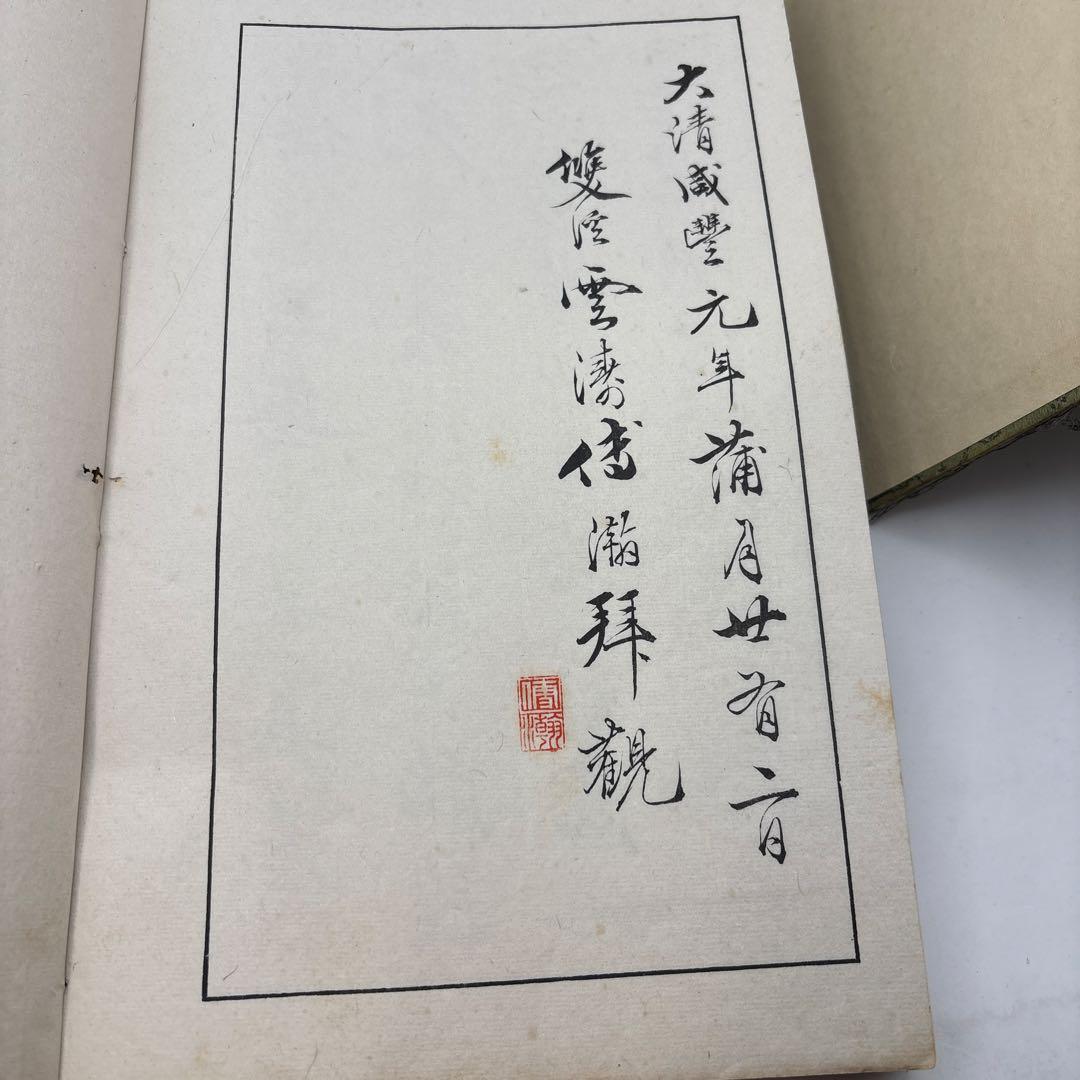 大清咸豐元年蒲月廿有二日
雙溪雲濤傅瀚拜觀
傅瀚